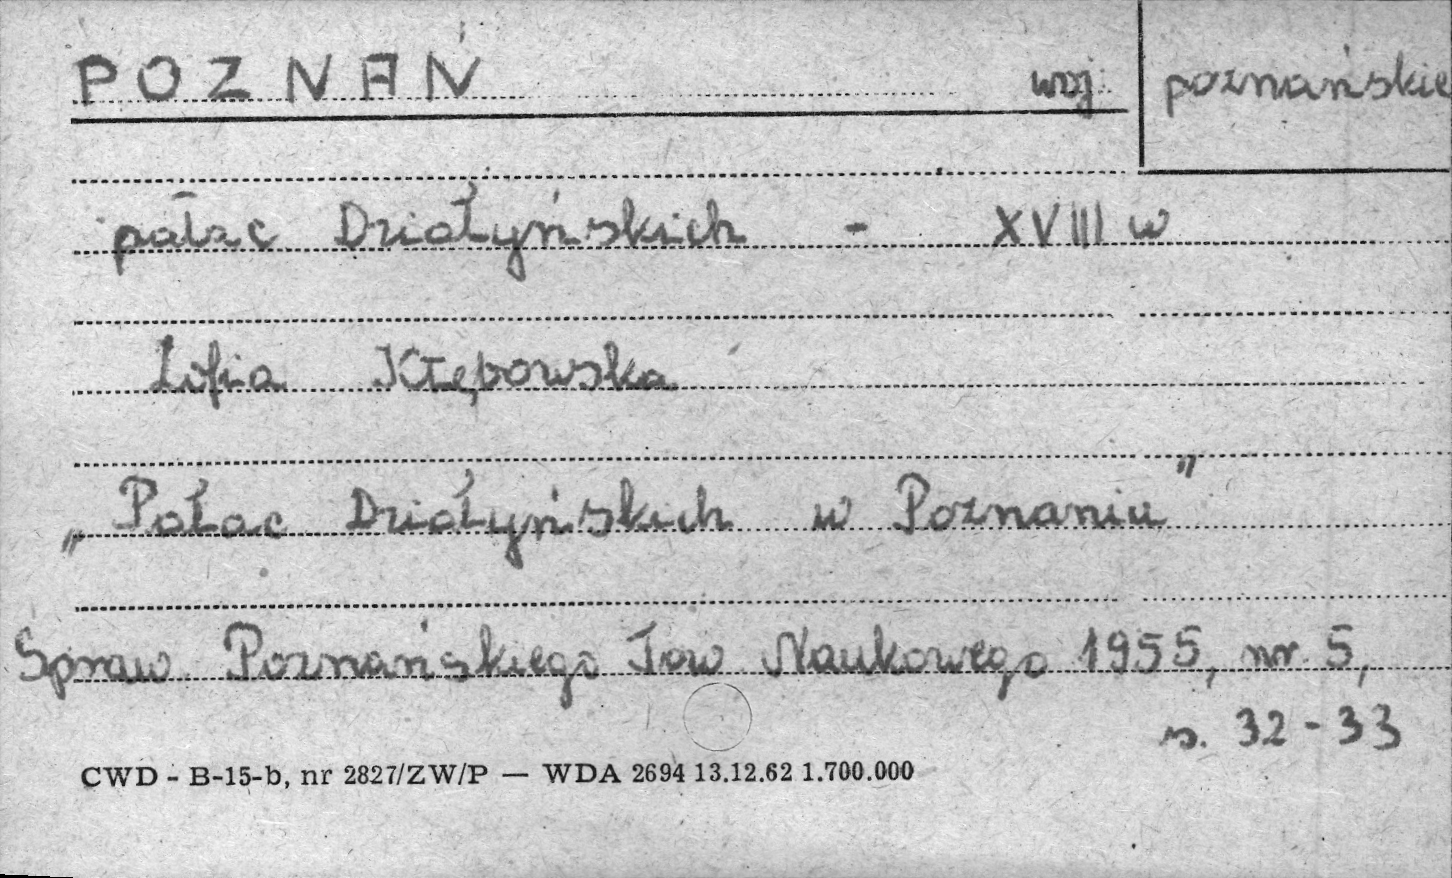 POZNAŃ woj. poznańskie
pałac Działyńskich - XVIII w
Zofia Kłębowska
„Pałac Działyńskich w Poznaniu"
Spraw. Poznańskiego Tow Naukowego 1955, nr 5,
s. 32-33
CWD - B-15-b, nr 2827/ZW/P — WDA 2694 13.12.62 1.700.000